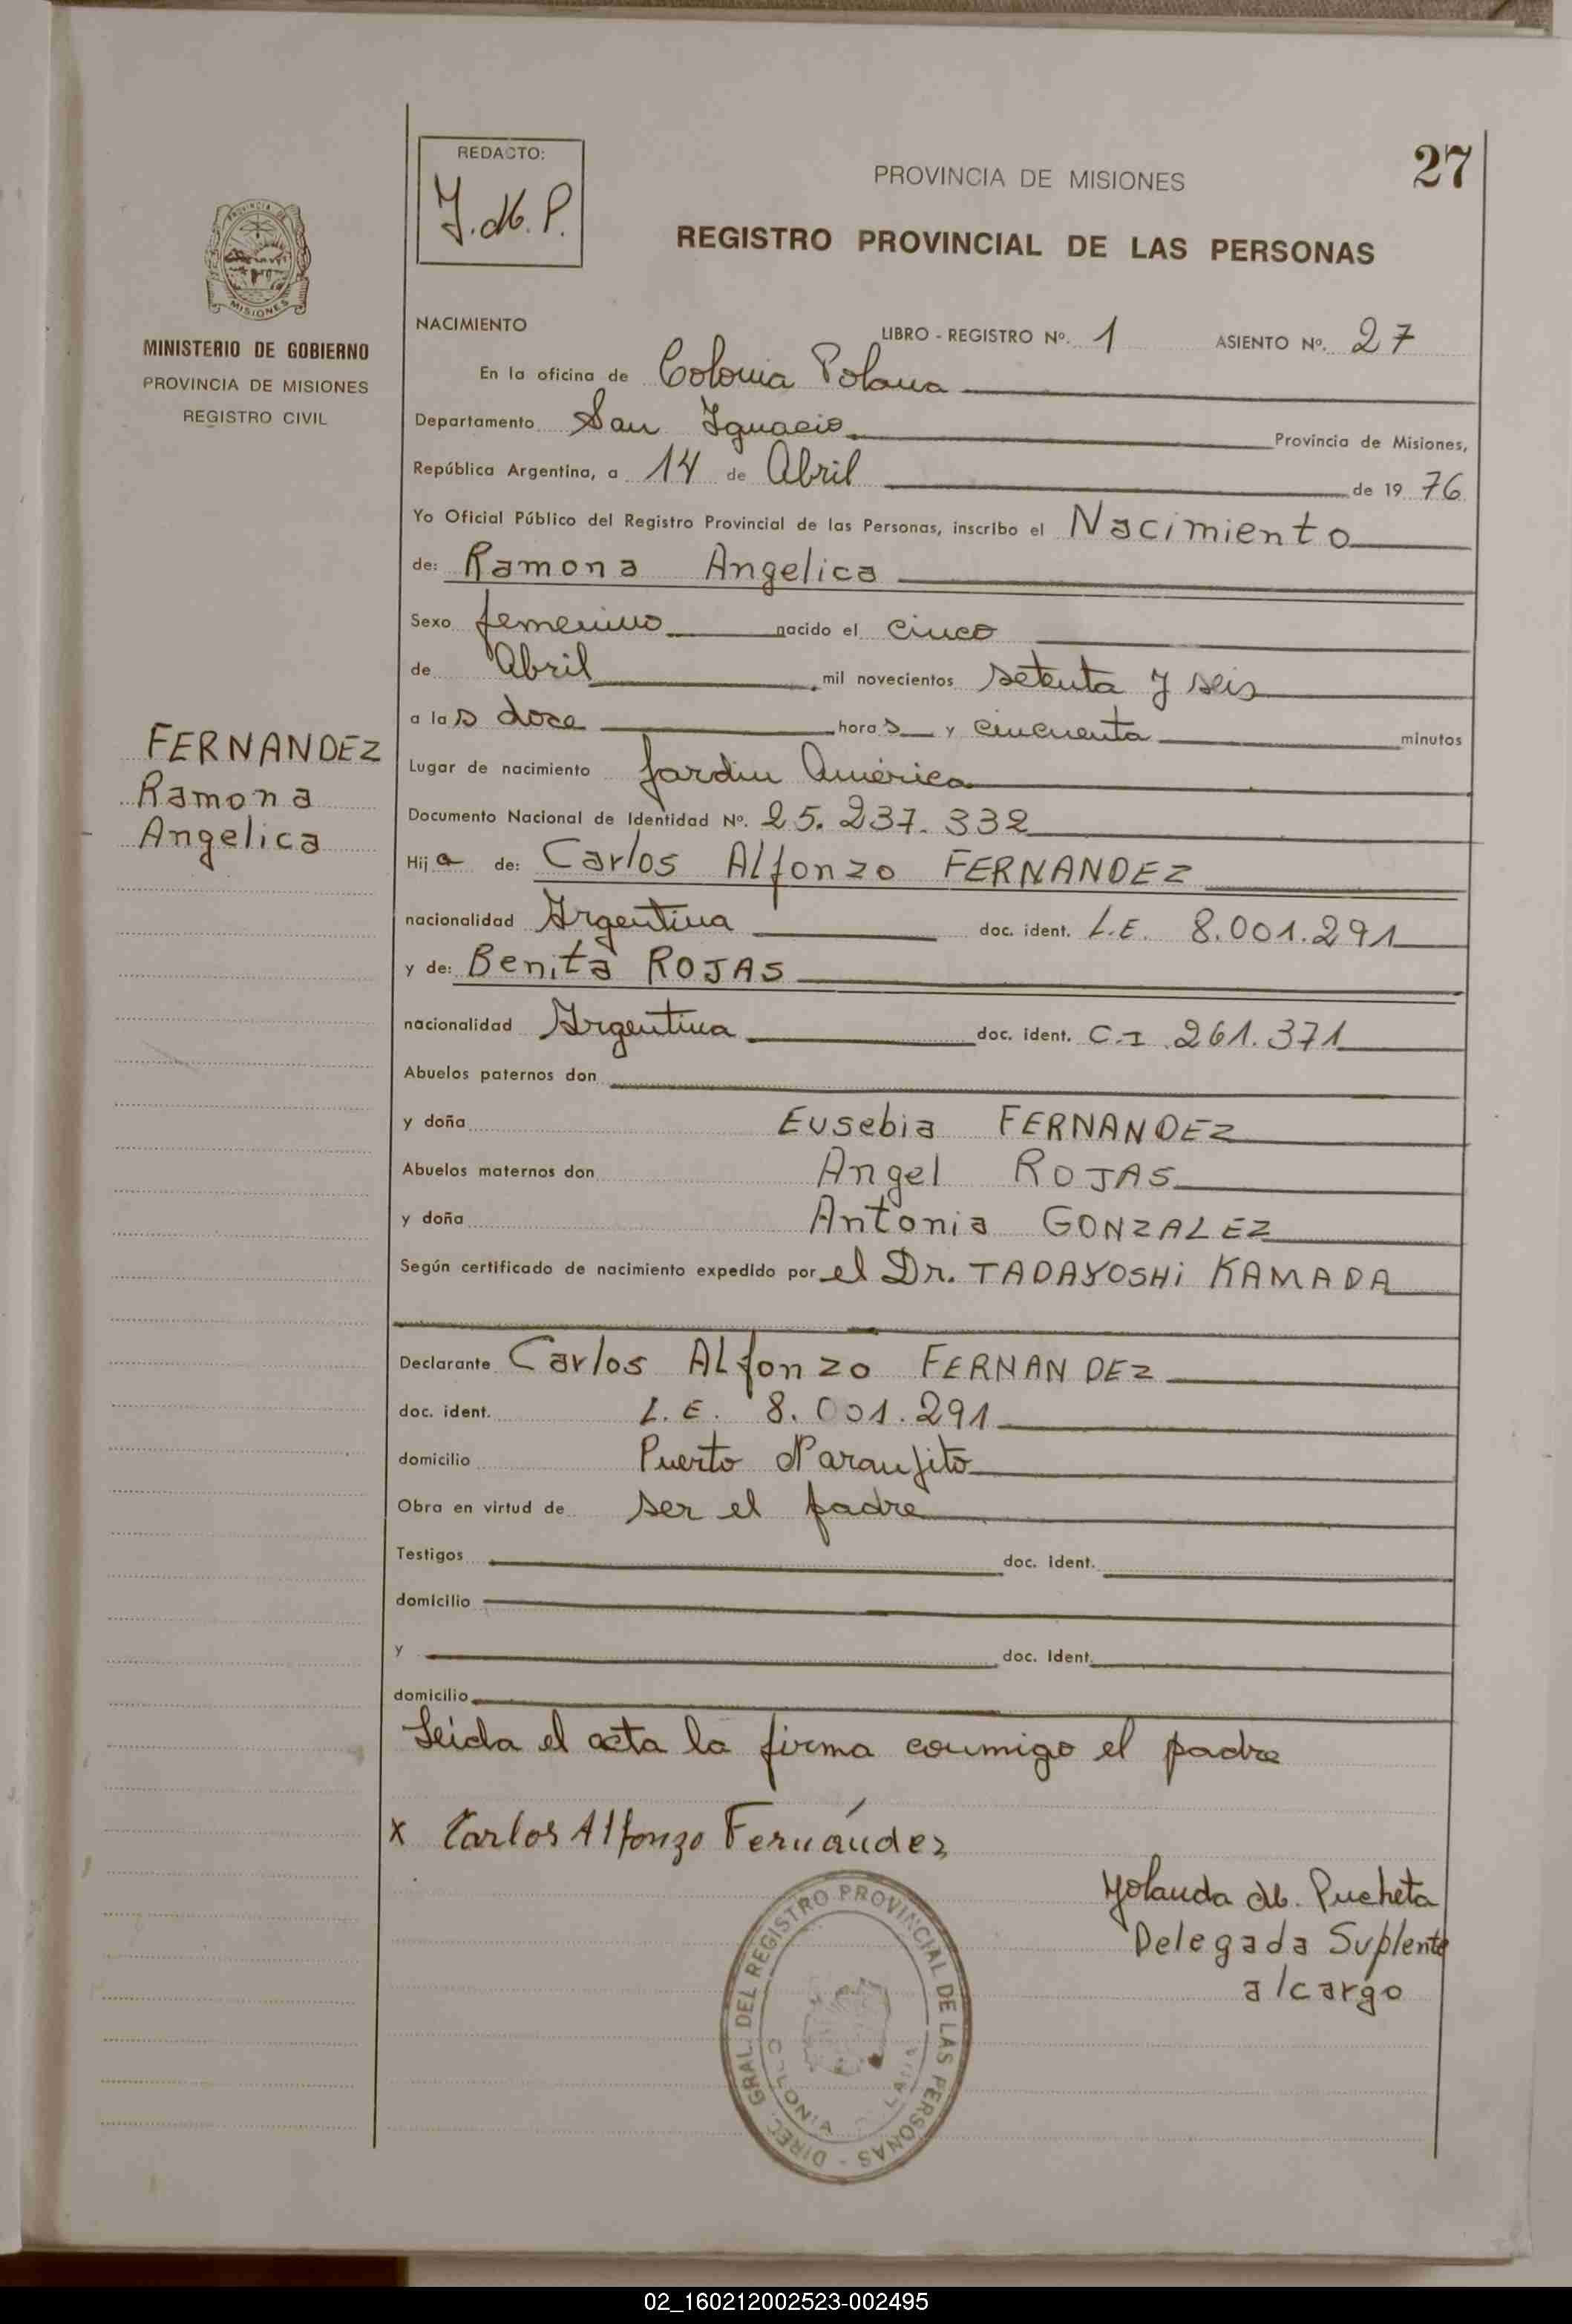 27
REDACTO:
Y.M.P.
PROVINCIA DE MISIONES
REGISTRO PROVINCIAL DE LAS PERSONAS
PROVINCIA DE
MISIONES
MINISTERIO DE GOBIERNO
PROVINCIA DE MISIONES
REGISTRO CIVIL
FERNANDEZ
Ramona
Angelica
NACIMIENTO LIBRO - REGISTRO Nº. 1 ASIENTO Nº. 27
En la oficina de Colonia Polana
Departamento San Ignacio Provincia de Misiones,
República Argentina, a 14 de Abril de 19 76
Yo Oficial Público del Registro Provincial de las Personas, inscribo el Nacimiento
de: Ramona Angelica
Sexo femenino nacido el cinco
de Abril mil novecientos setenta y seis
a las doce horas y cincuenta minutos
Lugar de nacimiento Jardin América
Documento Nacional de Identidad Nº. 25.237.332
Hija de: Carlos Alfonzo FERNANDEZ
nacionalidad Argentina doc. ident. L.E. 8.001.291
y de: Benita ROJAS
nacionalidad Argentina doc. ident. C.I 261.371
Abuelos paternos don
y doña Eusebia FERNANDEZ
Abuelos maternos don Angel ROJAS
y doña Antonia GONZALEZ
Según certificado de nacimiento expedido por el Dr. TADAYOSHi KAMADA
Declarante Carlos Alfonzo FERNANDEZ
doc. ident. L.E. 8.001.291
domicilio Puerto Naranjito
Obra en virtud de ser el padre
Testigos doc. Ident.
domicilio
y doc. Ident.
domicilio
Leida el acta la firma conmigo el padre
x Carlos Alfonzo Fernández
Yolanda M. Pucheta
Delegada Suplente
a/cargo
DIREC. GRAL. DEL REGISTRO PROVINCIAL DE LAS PERSONAS -
COLONIA
02_160212002523-002495